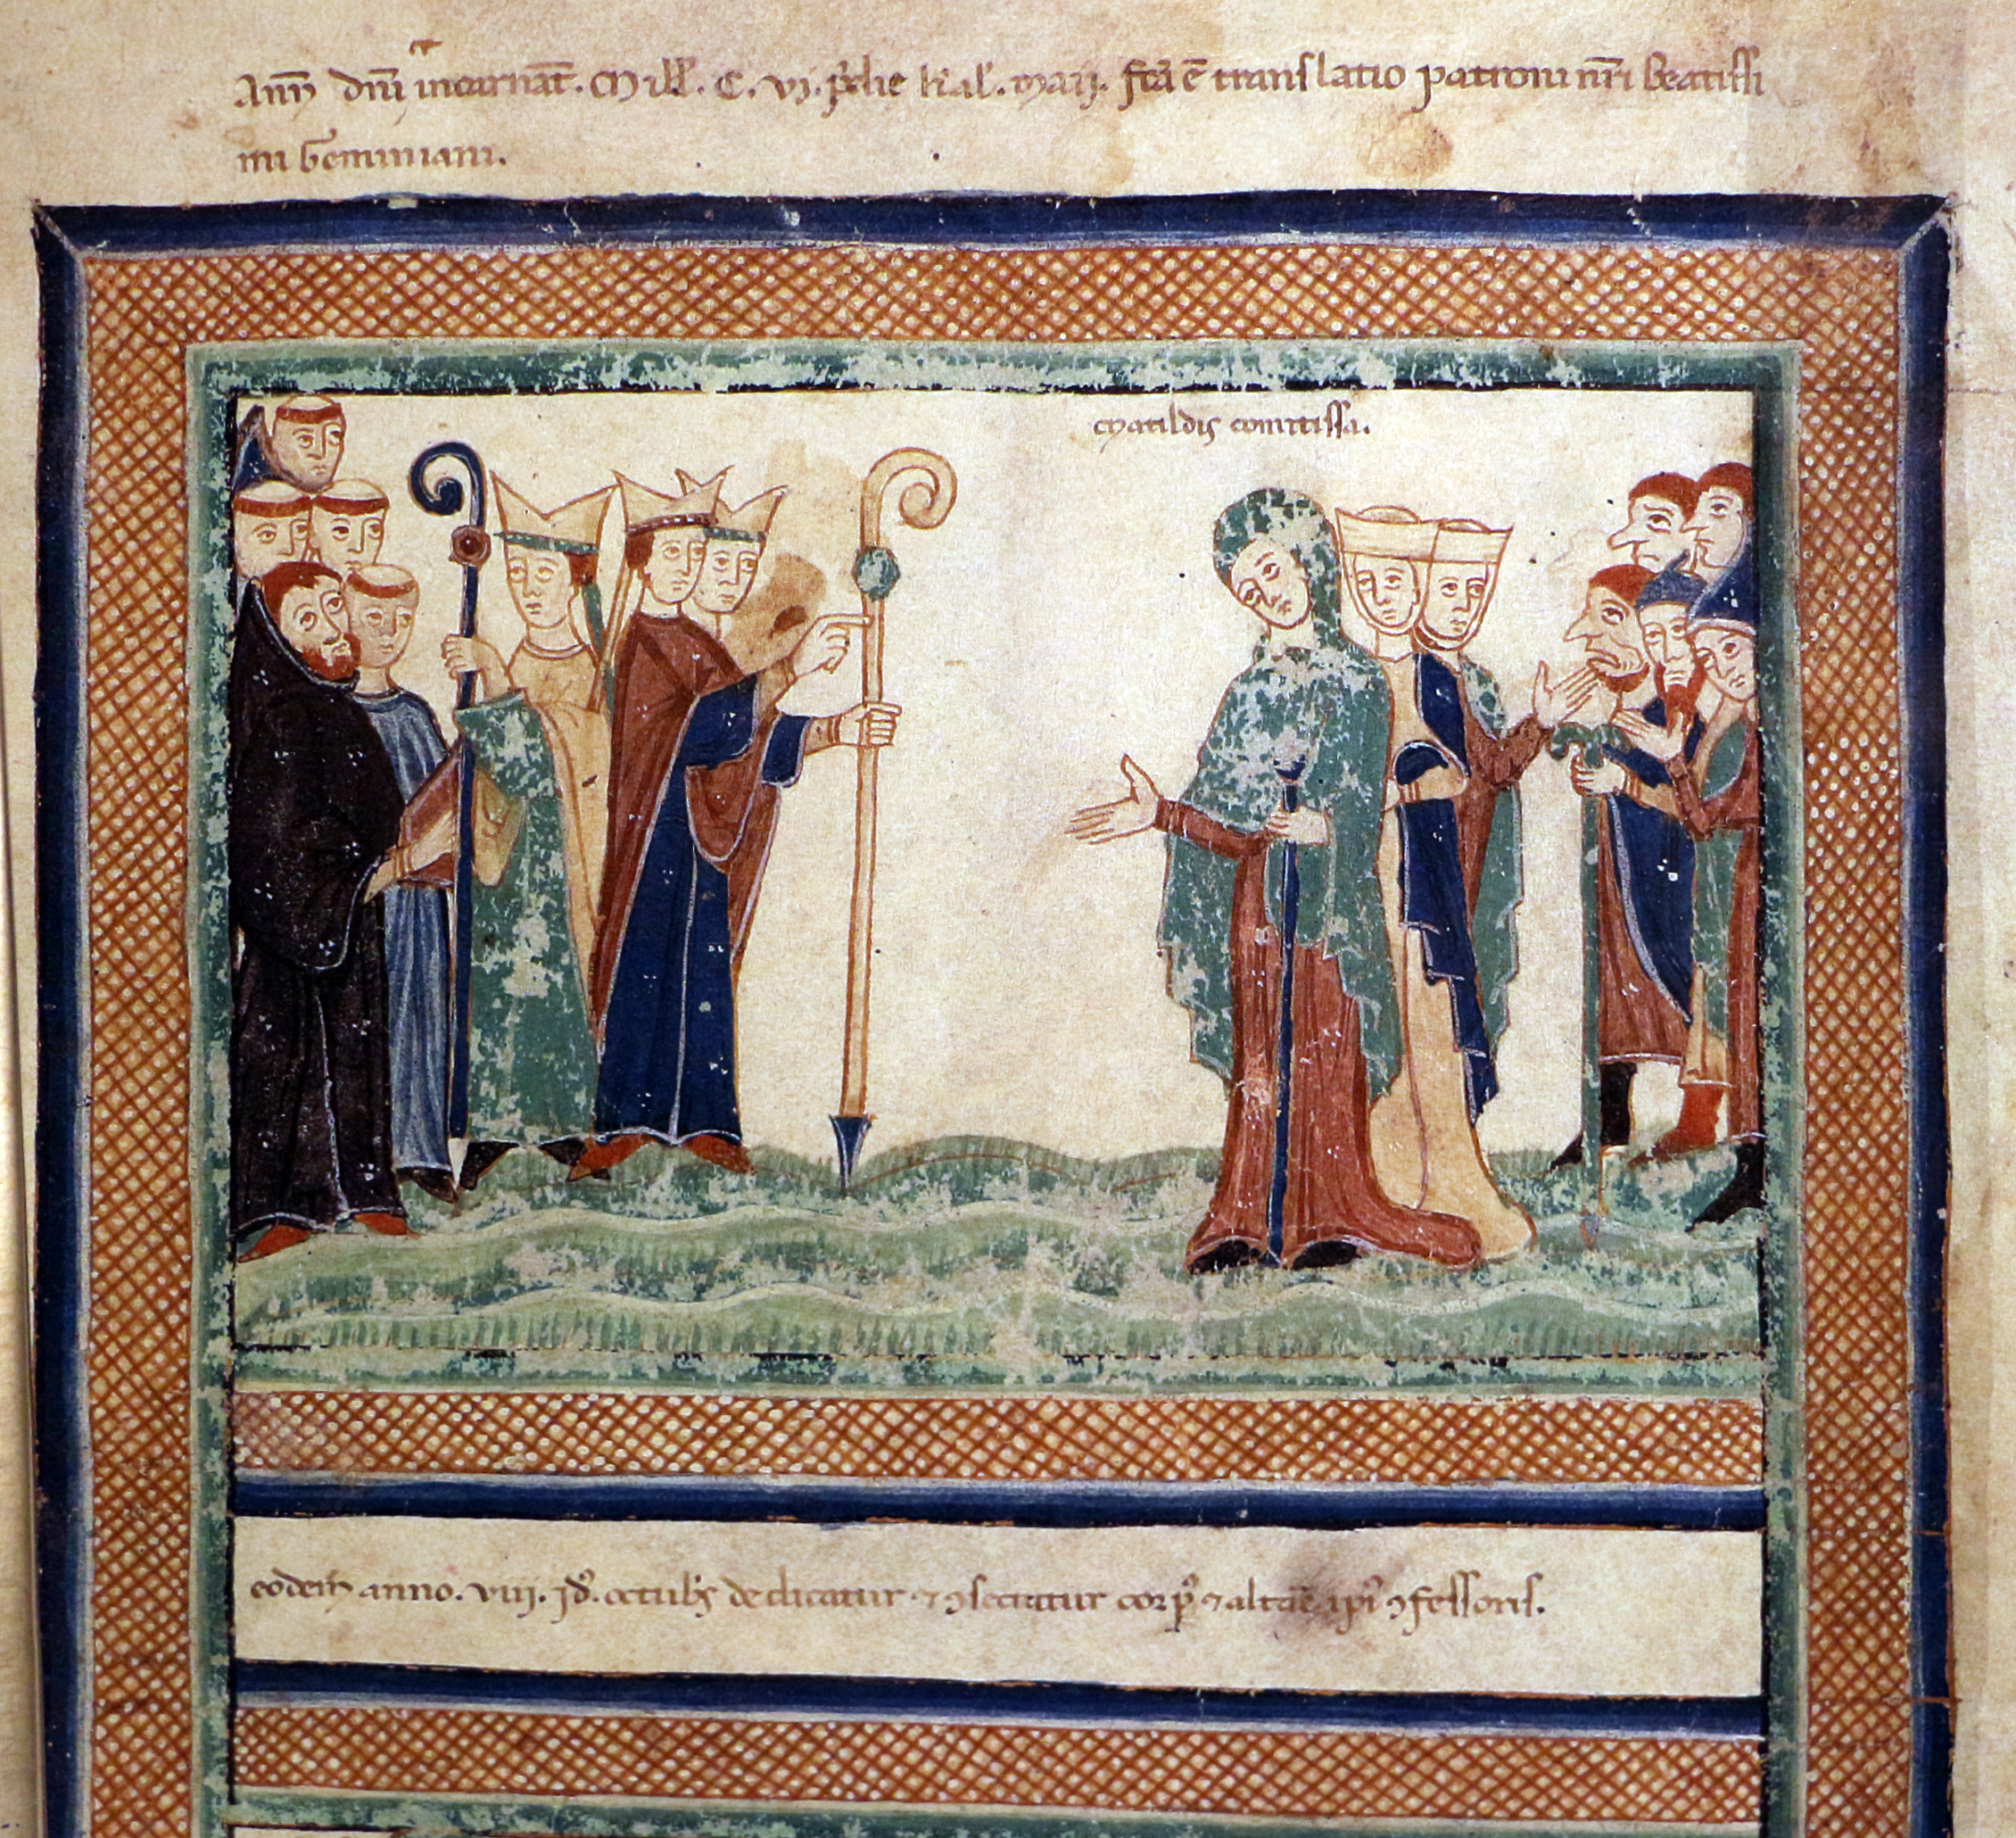 Anñ dñi incarnat̄. Mill̄. C. vi. p̄die kal̄. maii. fcā ē translatio patroni nr̄i beatissi
mi Geminiani.
Matildis comitissa.
eodem anno. viii. id̄. octub̄s dedicatur ⁊ ꝯsecratur corp̄ ⁊ altare ip̄i ꝯfessoris.